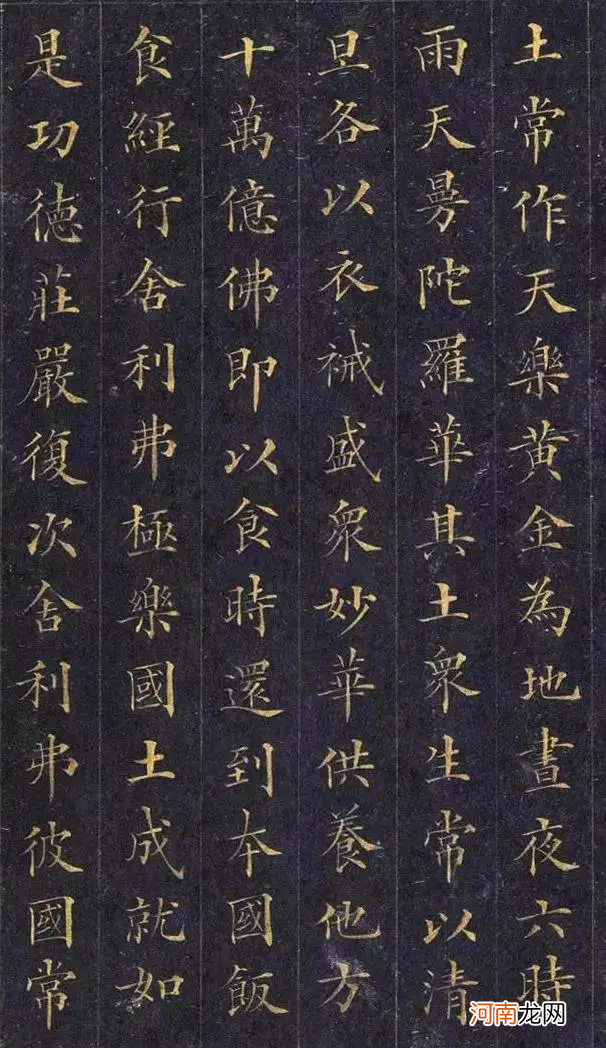 土常作天樂黄金為地晝夜六時
雨天曼陀羅華其土衆生常以清
旦各以衣祴盛衆妙華供養他方
十萬億佛即以食時還到本國飯
食經行舍利弗極樂國土成就如
是功徳莊嚴復次舍利弗彼國常
河南龙网